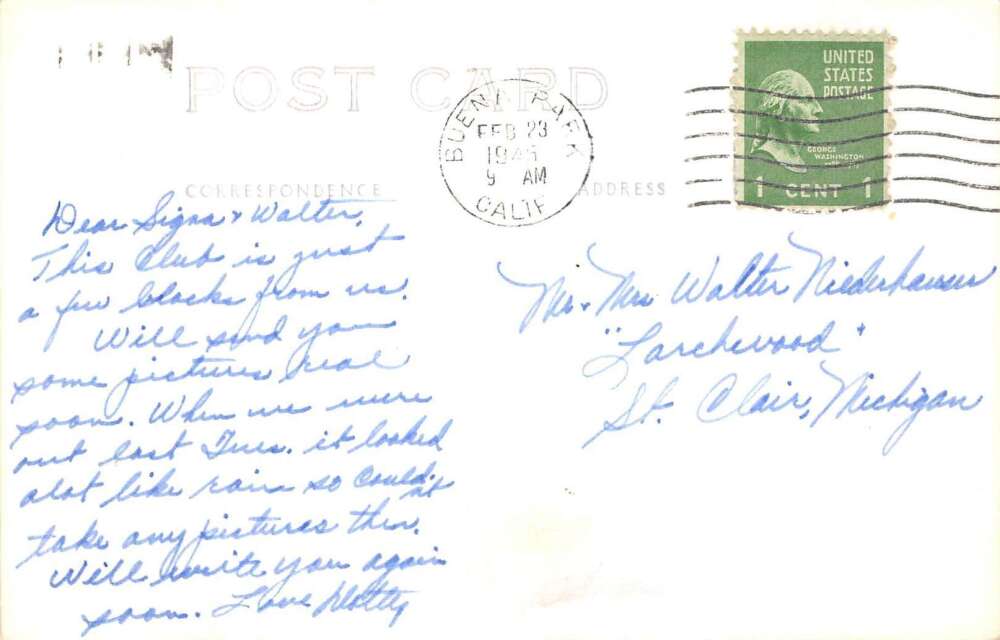 POST CARD
BUENA PARK
FEB 23
194
9 AM
CALIF
UNITED
STATES
POSTAGE
GEORGE
WASHINGTON
1 CENT 1
CORRESPONDENCE
ADDRESS
Dear Signa & Walter,
This Club is just
a few blocks from us.
Will send you
some pictures real
soon. When we were
out last Tues. it looked
alot like rain so couldn't
take any pictures then.
Will write you again
soon. Love Dotty
Mr. & Mrs Walter Niederhauser
"Larchwood"
St. Clair, Michigan